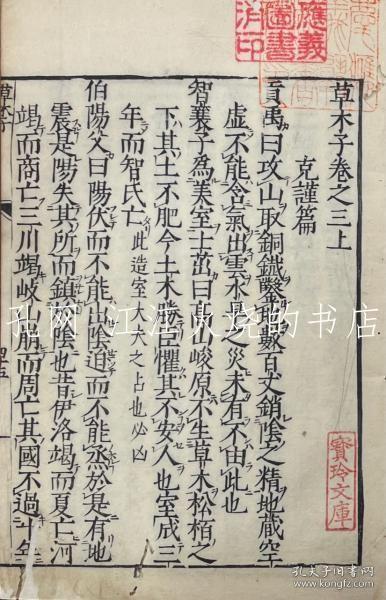 應義
圖書
消印
草木子卷之三上
克謹篇
貢禹曰攻山取銅鐵鑿地數百丈銷陰之精地藏空
虛不能含氣出雲水旱之災未有不由此也
智襄子為美室士茁曰高山峻原不生草木松栢之
下其土不肥今土木勝臣懼其不安人也室成三
年而智氏亡此造室太大之占也必凶
伯陽父曰陽伏而不能出陰迫而不能烝於是有地
震是陽失其所而鎮陰也昔伊洛竭而夏亡河
竭而商亡三川竭岐山崩而周亡其國不過十年
草木子
寶玲文庫
孔网 江江火烧的书店
孔夫子旧书网